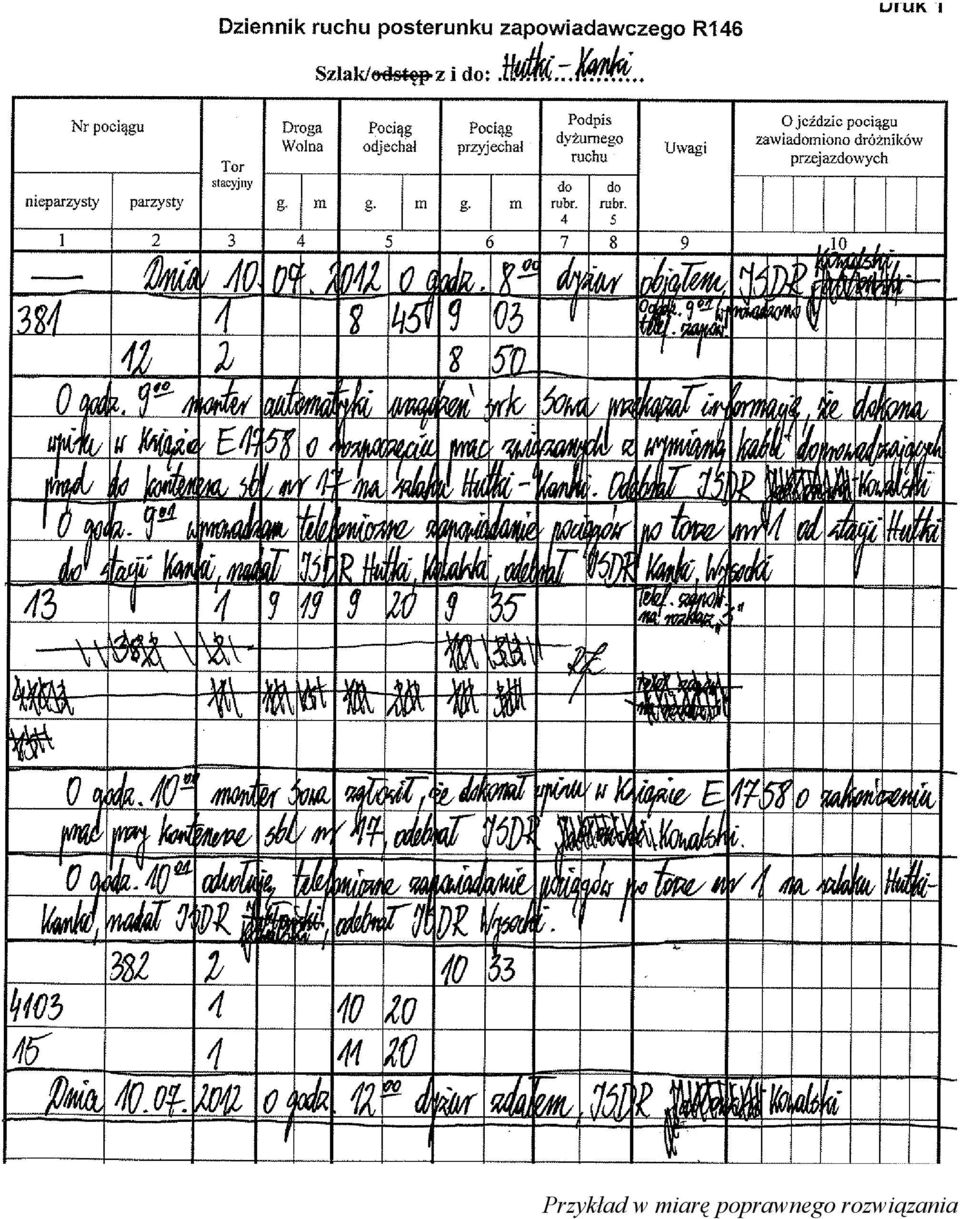 Druk 1
Dziennik ruchu posterunku zapowiadawczego R146
Szlak/odstęp z i do: Hutki - Kanki
Nr pociągu Tor stacyjny Droga Wolna Pociąg odjechał Pociąg przyjechał Podpis dyżurnego ruchu Uwagi O jeździe pociągu zawiadomiono dróżników przejazdowych
nieparzysty parzysty g. m g. m g. m do rubr. 4 do rubr. 5
1 2 3 4 5 6 7 8 9 10
Dnia 10.07.2012 o godz. 8⁰⁰ dyżur objąłem, ISDR Kowalski
381 1 8 45 9 03 9⁰¹ wprowadzono telef. zapow.
12 2 8 50
O godz. 9⁰⁰ monter automatyki urządzeń srk Sowa przekazał informację, że dokona
wpisu w Książce E1758 o rozpoczęciu prac związanych z wymianą kabli doprowadzających
prąd do kontenera sbl nr 17 na szlaku Hutki - Kanki. Odebrał ISDR Kowalski
O godz. 9⁰¹ wprowadzam telefoniczne zapowiadanie pociągów po torze nr 1 od stacji Hutki
do stacji Kanki, nadał ISDR Hutki, Kowalski, odebrał ISDR Kanki, Wysocki
13 1 9 19 9 20 9 35 telef. zapow. na rozkaz „S"
O godz. 10⁰⁰ monter Sowa zgłosił, że dokonał wpisu w Książce E1758 o zakończeniu
prac przy kontenerze sbl nr 17, odebrał ISDR Kowalski.
O godz. 10⁰¹ odwołuję telefoniczne zapowiadanie pociągów po torze nr 1 na szlaku Hutki-
Kanki, nadał ISDR Kowalski, odebrał ISDR Wysocki.
382 2 10 33
4103 1 10 20
15 1 11 20
Dnia 10.07.2012 o godz. 12⁰⁰ dyżur zdałem, ISDR Kowalski
Przykład w miarę poprawnego rozwiązania